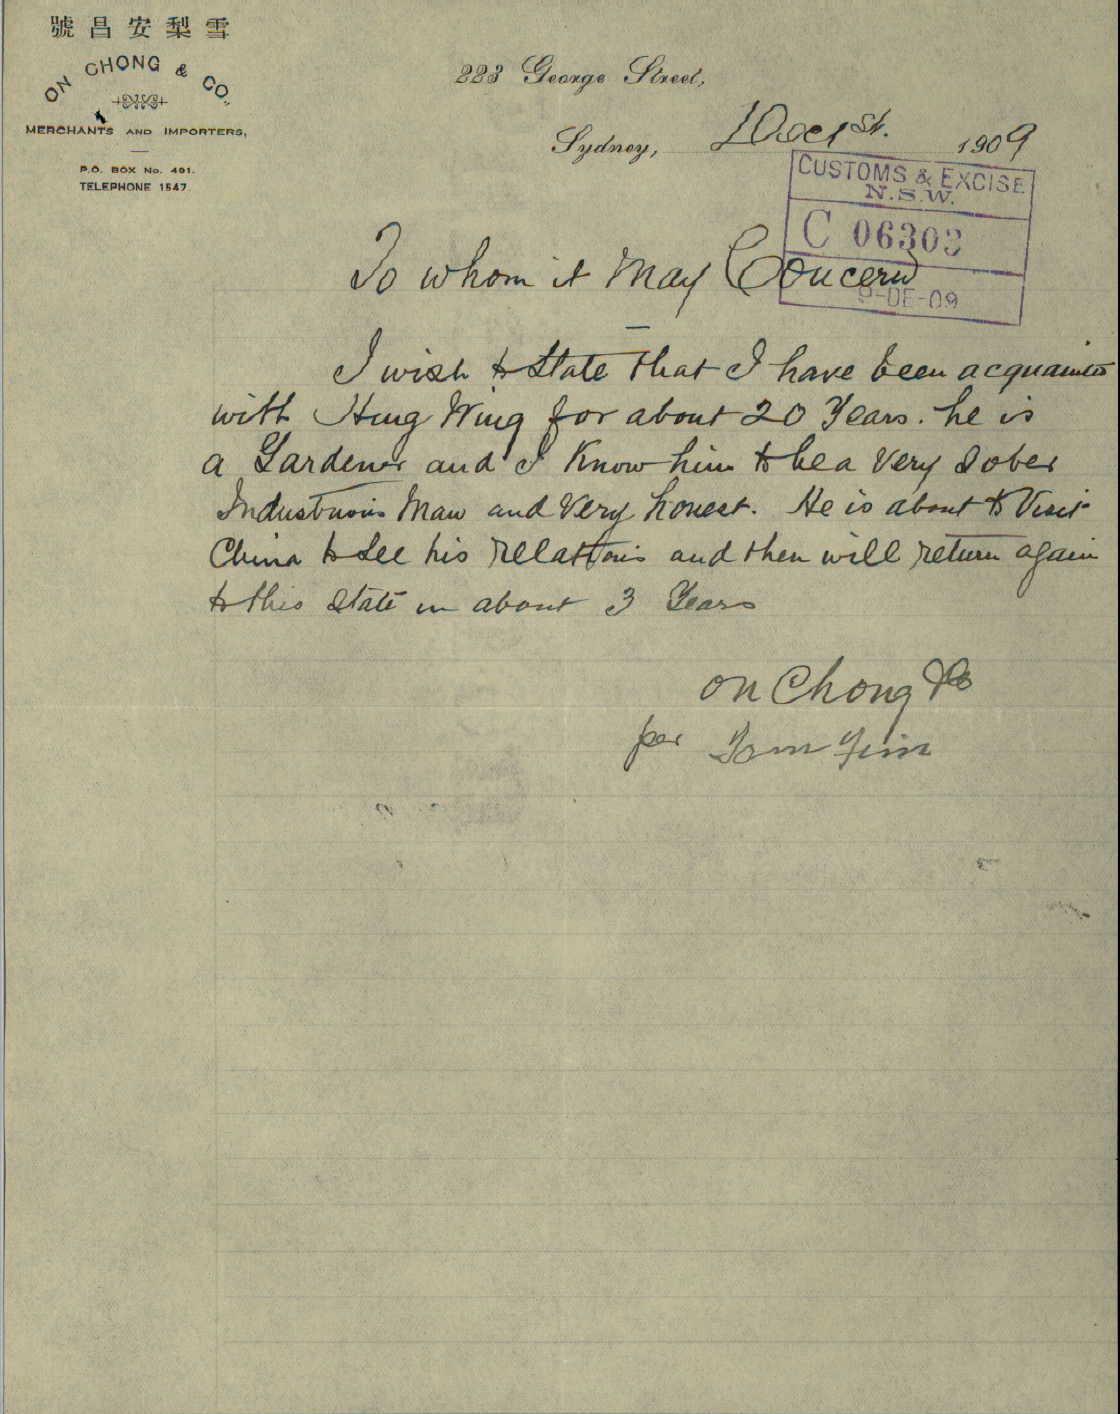 號昌安梨雪
ON CHONG & CO.,
MERCHANTS AND IMPORTERS,
P.O. BOX No. 491.
TELEPHONE 1547.
223 George Street,
Sydney, Dec 1st. 1909
CUSTOMS & EXCISE
N.S.W.
C 06303
9-DE-09
To whom it May Concern
I wish to State that I have been acquainted
with Hing Wing for about 20 Years. he is
a Gardener and I Know him to be a Very Sober
Industrious Man and Very honest. He is about to Visit
China to See his rellations and then will return again
to this State in about 3 Years
On Chong & Co
per